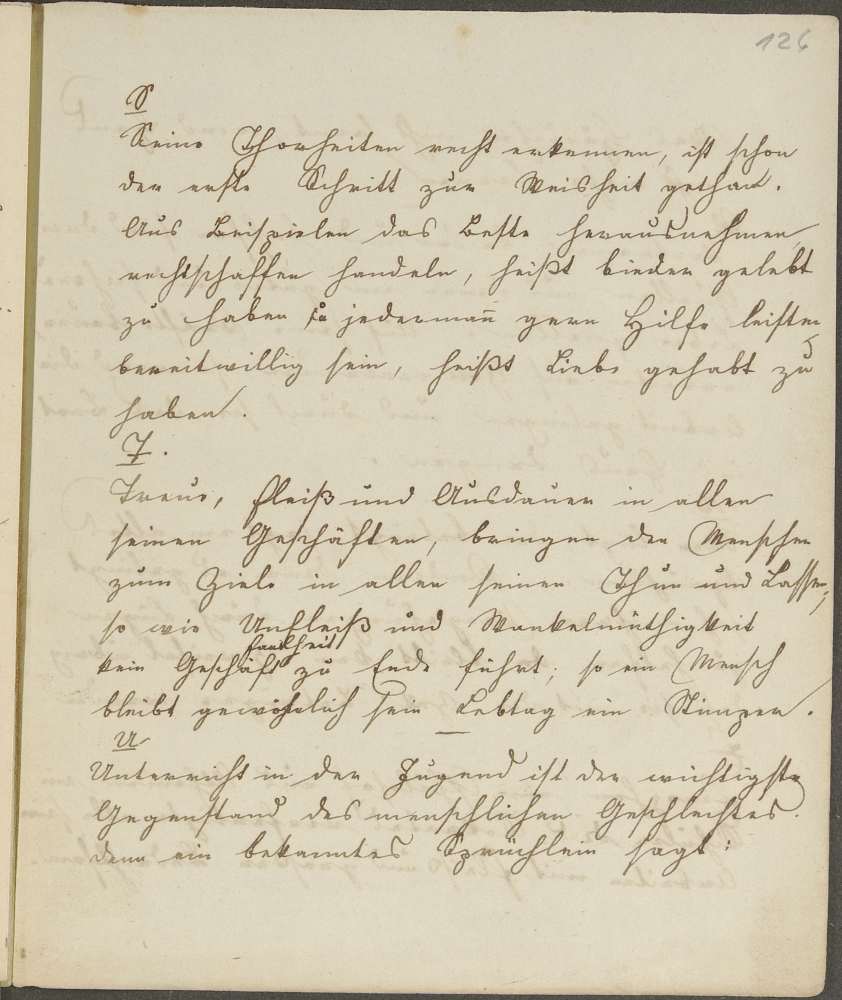 126
S
Seine Thorheiten recht erkennen, ist schon
der erste Schritt zur Weisheit gethan.
Aus Beispielen das Beste herausnehmen,
rechtschaffen handeln, heißt bieder gelebt
zu haben jedermañ gern Hilfe leisten
bereitwillig sein, heißt Liebe gehabt zu
haben.
T.
Treue, Fleiß und Ausdauer in allen
seinen Geschäften, bringen den Menschen
zum Ziele in allen seinen Thun und Lassen,
so wie Unfleiß und Wankelmüthigkeit
Faulheit
kein Geschäft zu Ende führt; so ein Mensch
bleibt gewöhnlich sein Lebtag ein Stümper.
U
Unterricht in der Jugend ist der wichtigste
Gegenstand des menschlichen Geschlechtes.
denn ein bekanntes Sprüchlein sagt: